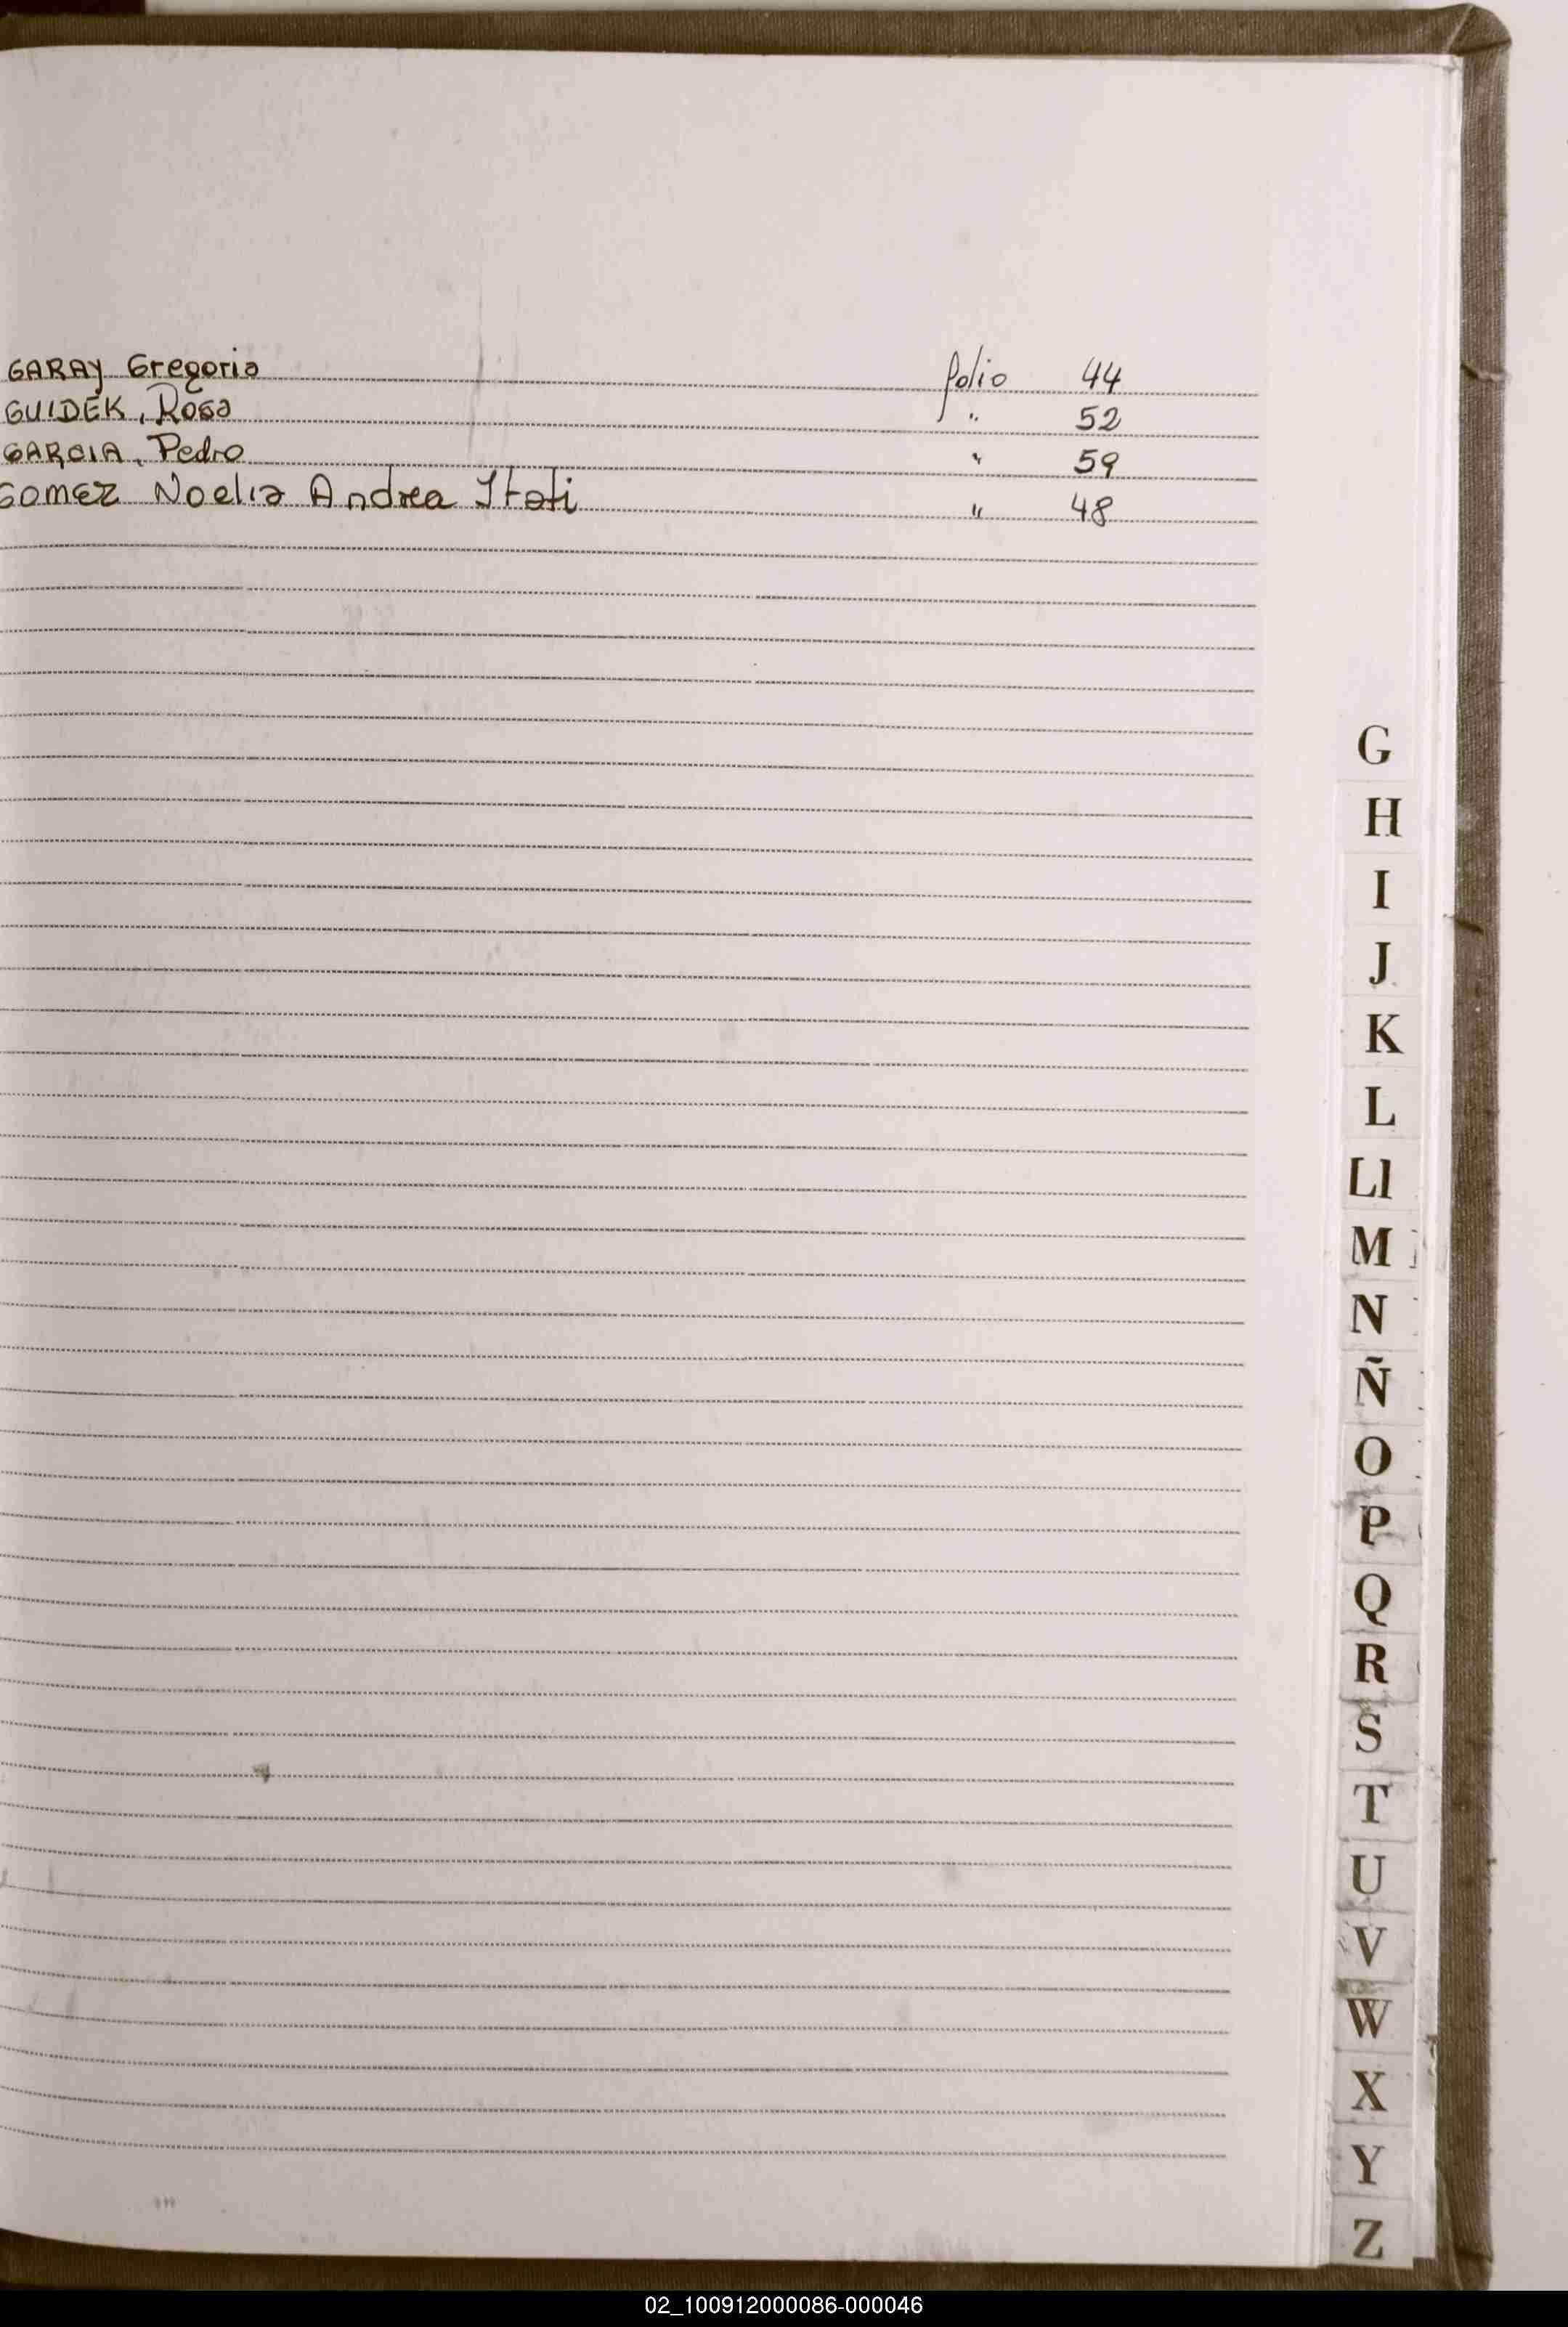 GARAY Gregoria folio 44
GUIDEK, Rosa " 52
GARCIA, Pedro " 59
GOMEZ Noelia Andrea Itati " 48
G
H
I
J
K
L
Ll
M
N
Ñ
O
P
Q
R
S
T
U
V
W
X
Y
Z
02_100912000086-000046